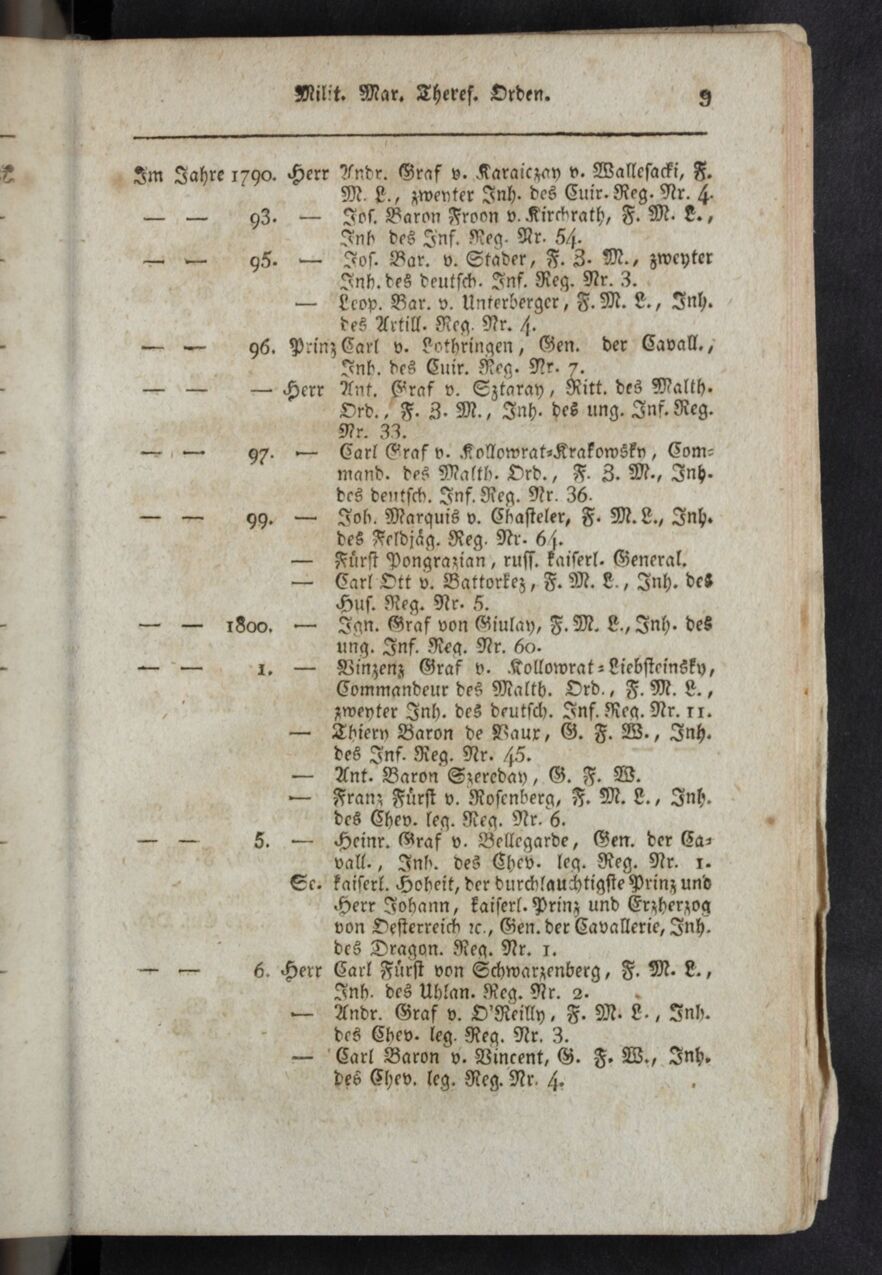 Milit. Mar. Theres. Orden. 9
Im Jahre 1790. Herr Andr. Graf v. Karaiczay v. Wallesacki, F.
M. L., zweyter Inh. des Cuir. Reg. Nr. 4.
— — 93. — Jos. Baron Froon v. Kirchrath, F. M. L.,
Inh des Inf. Reg. Nr. 54.
— — 95. — Jos. Bar. v. Stader, F. Z. M., zweyter
Inh. des deutsch. Inf. Reg. Nr. 3.
— Leop. Bar. v. Unterberger, F. M. L., Inh.
des Artill. Reg. Nr. 4.
— — 96. Prinz Carl v. Lothringen, Gen. der Cavall.,
Inh. des Cuir. Reg. Nr. 7.
— — — Herr Ant. Graf v. Sztaray, Ritt. des Malth.
Ord., F. Z. M., Inh. des ung. Inf. Reg.
Nr. 33.
— — 97. — Carl Graf v. Kollowrat-Krakowsky, Com-
mand. des Malth. Ord., F. Z. M., Inh.
des deutsch. Inf. Reg. Nr. 36.
— — 99. — Joh. Marquis v. Chasteler, F. M. L., Inh.
des Feldjäg. Reg. Nr. 64.
— Fürst Pongrazian, russ. kaiserl. General.
— Carl Ott v. Battorkez, F. M. L., Inh. des
Hus. Reg. Nr. 5.
— — 1800. — Ign. Graf von Giulay, F. M. L., Inh. des
ung. Inf. Reg. Nr. 60.
— — 1. — Vinzenz Graf v. Kollowrat-Liebsteinsky,
Commandeur des Malth. Ord., F. M. L.,
zweyter Inh. des deutsch. Inf. Reg. Nr. 11.
— Thiery Baron de Vaux, G. F. W., Inh.
des Inf. Reg. Nr. 45.
— Ant. Baron Szereday, G. F. W.
— Franz Fürst v. Rosenberg, F. M. L., Inh.
des Chev. leg. Reg. Nr. 6.
— — 5. — Heinr. Graf v. Bellegarde, Gen. der Ca-
vall., Inh. des Chev. leg. Reg. Nr. 1.
Se. kaiserl. Hoheit, der durchlauchtigste Prinz und
Herr Johann, kaiserl. Prinz und Erzherzog
von Oesterreich ꝛc., Gen. der Cavallerie, Inh.
des Dragon. Reg. Nr. 1.
— — 6. Herr Carl Fürst von Schwarzenberg, F. M. L.,
Inh. des Uhlan. Reg. Nr. 2.
— Andr. Graf v. O'Reilly, F. M. L., Inh.
des Chev. leg. Reg. Nr. 3.
— Carl Baron v. Vincent, G. F. W., Inh.
des Chev. leg. Reg. Nr. 4.